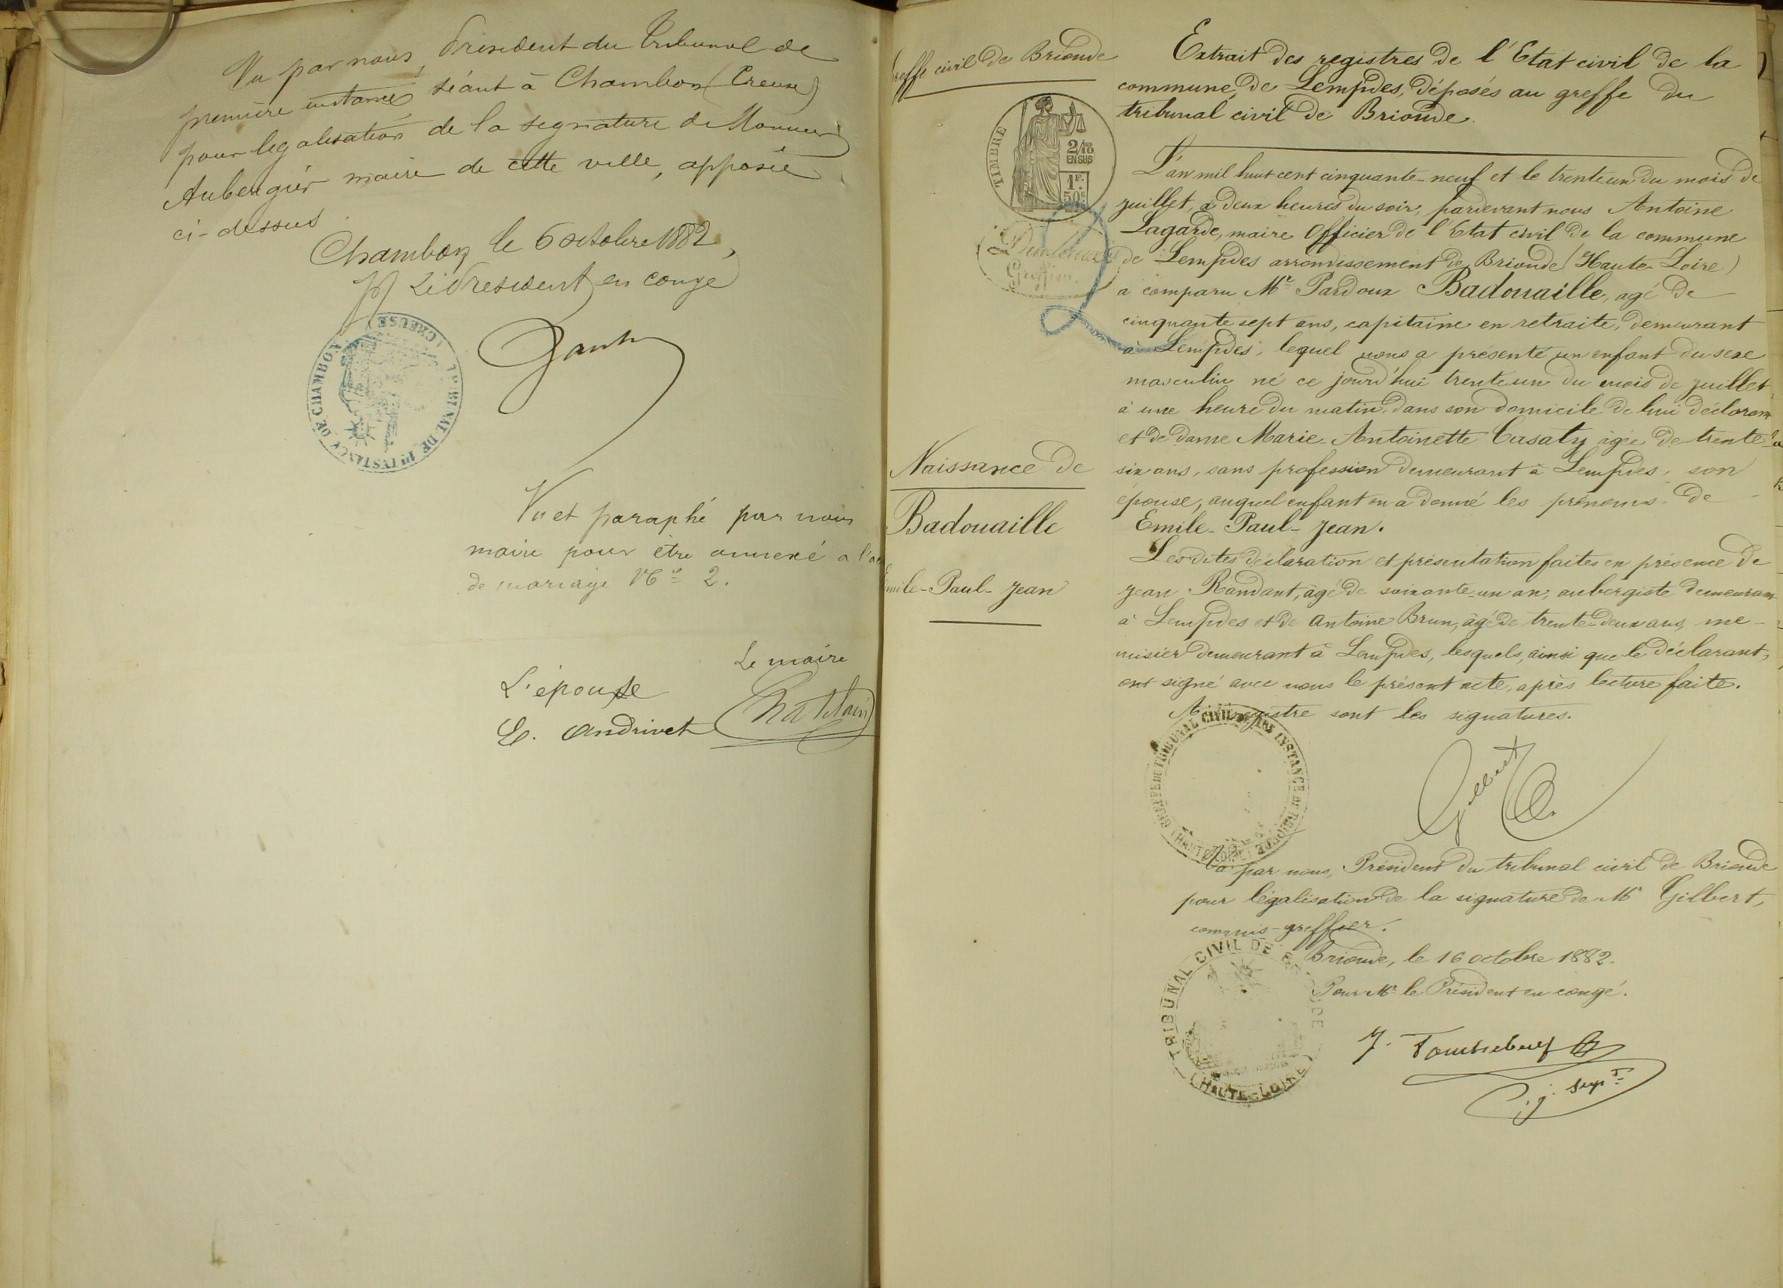 Vu par nous, Président du Tribunal de
première instance séant à Chambon (Creuse)
pour légalisation de la signature de Monsieur
Aubergier maire de cette ville, apposée
ci-dessus
Chambon le 6 octobre 1882,
Le Président en congé
TRIBUNAL DE 1re INSTANCE DE CHAMBON (CREUSE)
Vu et paraphé par nous
maire pour être annexé à l'a
de mariage No 2.
Le maire
L'épouse
E. Andrivet
Greffe civil de Brioude
TIMBRE
2/10
EN SUS
1F.
50C.
Naissance de
Badouaille
Emile-Paul-Jean
Extrait des registres de l'Etat civil de la
commune de Lempdes, déposés au greffe du
tribunal civil de Brioude.
L'an mil huit cent cinquante-neuf et le trente un du mois de
juillet, à deux heures du soir, pardevant nous Antoine
Lagarde, maire Officier de l'Etat civil de la commune
de Lempdes arrondissement de Brioude (Haute-Loire)
a comparu Mr Pardoux Badouaille, agé de
cinquante sept ans, capitaine en retraite, demeurant
à Lempdes, lequel nous a présenté un enfant du sexe
masculin né ce jourd'hui trente un du mois de juillet
à une heure du matin dans son domicile de lui déclarant
et de dame Marie-Antoinette Casaty âgée de trente
six ans, sans profession demeurant à Lempdes, son
épouse, auquel enfant on a donné les prénoms de
Emile-Paul-Jean.
Lesdites déclaration et présentation faites en présence de
Jean Randant, âgé de soixante-un an, aubergiste demeurant
à Lempdes et de Antoine Brun, âgé de trente-deux ans, me-
nuisier demeurant à Lempdes, lesquels, ainsi que le déclarant,
ont signé avec nous le présent acte, après lecture faite.
Au registre sont les signatures.
Gilbert
GREFFE DU TRIBUNAL CIVIL DE 1ERE INSTANCE DE BRIOUDE (HAUTE-LOIRE)
Vu par nous, Président du tribunal civil de Brioude
pour légalisation de la signature de Mr Gilbert,
commis-greffier.
Brioude, le 16 octobre 1882.
Pour Mr le Président en congé.
TRIBUNAL CIVIL DE BRIOUDE (HAUTE-LOIRE)
j. Supt.